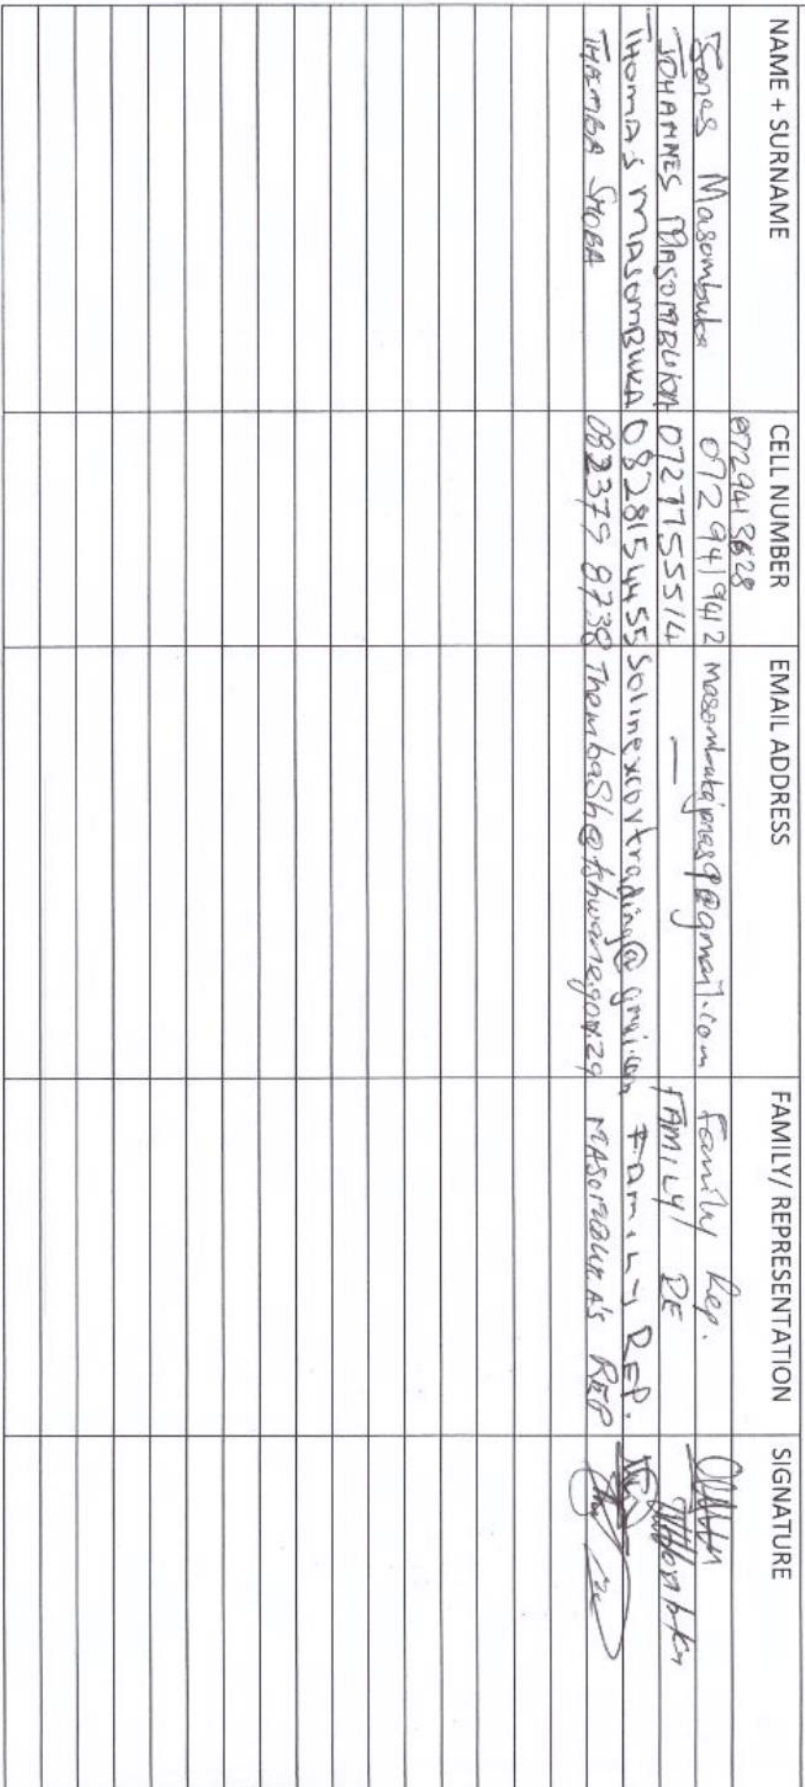 NAME + SURNAME CELL NUMBER EMAIL ADDRESS FAMILY/ REPRESENTATION SIGNATURE
0729413628
Jonas Masombuka 0729419412 masombukajonas9@gmail.com Family Rep.
JOHANNES MASOMBUKA 0727755514 — FAMILY RE
THOMAS MASOMBUKA 0828154455 Solinexcovtrading@gmai.com FAMILY REP.
THEMBA SHOBA 082379 8738 ThembaSh@tshwane.gov.za MASOMBUKA'S REP